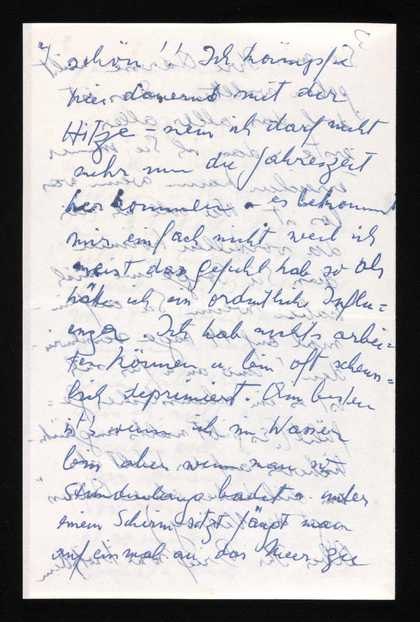 schön!! Ich kämpfe
hier dauernd mit der
Hitze – nein ich darf nicht
mehr um die Jahreszeit
her kommen – es bekommt
mir einfach nicht weil ich
meist das gefühl hab so als
hätte ich ein ordentliche Influ-
enza. Ich hab nichts arbei-
ten können u. bin oft scheuss-
lich deprimiert. Am besten
ist's wenn ich im Wasser
bin aber wenn man
Stundenlang badet u. unter
einem Schirm sitzt fängt man
auf einmal an das Meer zu